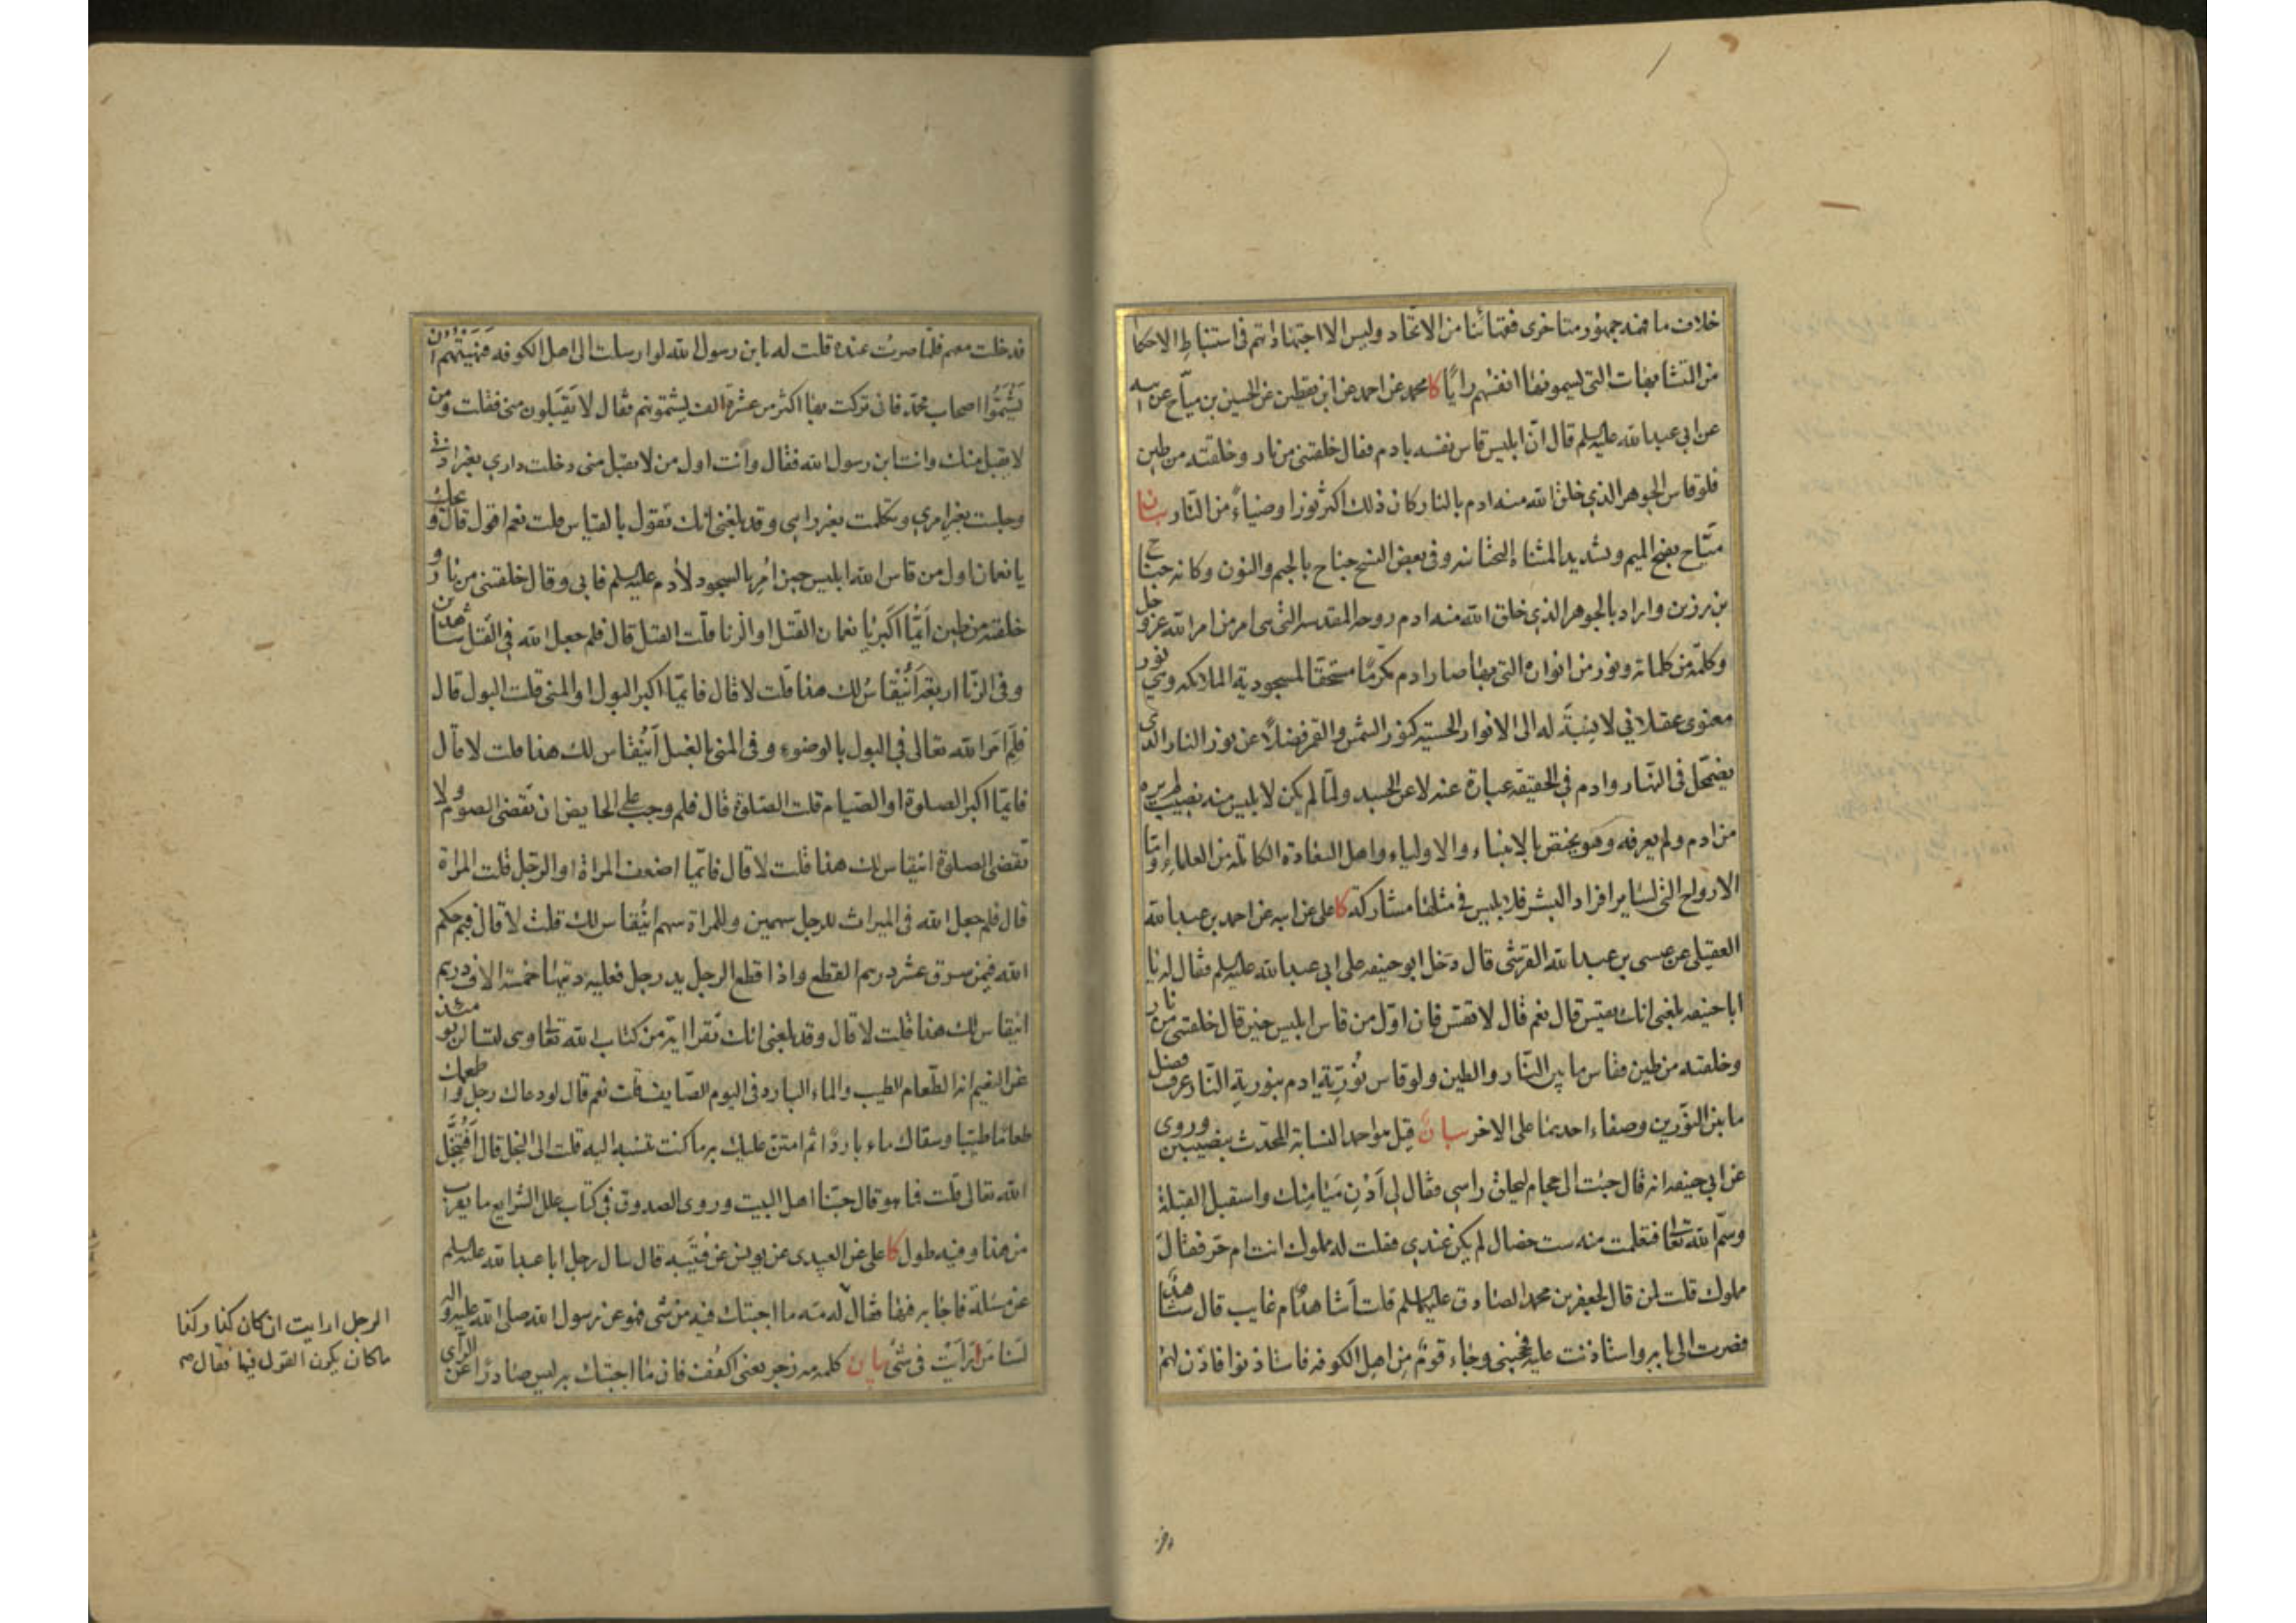 خلاف ما فهمه جمهور متاخرى فقهائنا من الاتحاد وليس الا اجتهاداتهم فى استنباط الاحكام
من المتشابهات التى يسمونها انفسهم رايًا كا محمد عن احمد عن ابن يقطين عن الحسين بن مياح عن ابيه
عن ابي عبد الله عليه السلم قال انّ ابليس قاس نفسه بادم فقال خلقتنى من نار وخلقته من طين
فلو قاس الجوهر الذي خلق الله منه ادم بالنار كان ذلك اكثر نورا وضياءً من النّار بيان
ميّاح بفتح الميم وتشديد المثناة التحتانية وفى بعض النسخ جناح بالجيم والنون وكانه جناح
بن رزين واراد بالجوهر الذي خلق الله منه ادم روحه المقدسه التى هى امر من امر الله عز وجل
وكلمة من كلماته ونور من انواره التى بها صار ادم مكرمًا مستحقا لمسجودية الملائكه وهى نور
معنوى عقلاني لا نسبة له الى الانوار الحسية كنور الشمس والقمر فضلاً عن نور النار الذى
يضمحل فى النهار وادم في الحقيقة عبارة عنه لا عن الجسد ولمّا لم يكن لابليس منه نصيب لم يره
من ادم ولم يعرفه وهو يختص بالانبياء والاولياء واهل السعادة الكاملة من العلماء وامّا
الارواح التى لساير افراد البشر فلابليس فى مثلها مشاركة كا على عن ابيه عن احمد بن عبد الله
العقيلى عن عيسى بن عبد الله القرشى قال دخل ابو حنيفه على ابي عبد الله عليه السلم فقال له يا
ابا حنيفه بلغنى انك تقيس قال نعم قال لا تقس فان اوّل من قاس ابليس حين قال خلقتنى من نار
وخلقته من طين فقاس ما بين النّار والطين ولو قاس نُورِيّة ادم بنورية النّار عرف فضل
ما بين النّورين وصفاء احديهما على الاخر بيان قيل هو احد النسابة المحدّث بنصيبين وروى
عن ابي حنيفه انه قال جئت الى حجام ليحلق راسى فقال لى اَدْنِ مَيامِنك واسقبل القبلة
وسمّ الله تعالى فتعلمت منه ست خصال لم يكن عندي فقلت له مملوك انت ام حر فقال
مملوك قلت لمن قال لجعفر بن محمد الصادق عليهما السلم قلت أشاهد ام غايب قال شاهد
فصرت الى بابه واستاذنت عليه فحجبنى وجاء قومٌ من اهل الكوفه فاستاذنوا فاذن لهم
فدخلت معهم فلمّا صرت عنده قلت له يا بن رسول الله لو ارسلت الى اهل الكوفه فنهيتهم ان
يشتموا اصحاب محمّد فانى تركت بها اكثر من عشرة الف يشتمونهم فقال لا يَقبلون منى فقلت ومن
لا يقبل منك وانت ابن رسول الله فقال وانت اول من لا يقبل منى دخلت داري بغير اذنى
وجلست بغير امري وتكلمت بغير رايى وقد بلغنى انك تقول بالقياس قلت نعم اقول قال ويحك
يا نعمان اول من قاس الله ابليس حين امر بالسجود لأدم عليه السلم فابى وقال خلقتنى من نار و
خلقته من طين اَيّما اكبر يا نعمان القتل او الزنا قلت القتل قال فلم جعل الله في القتل شاهدين
وفى الزنا اربعة اَيُنقاسُ لك هذا قلت لا قال فايّما اكبر البول او المنى قلت البول قال
فلم امر الله تعالى في البول بالوضوء وفى المنى بالغسل اَيُنقاس لك هذا قلت لا قال
فايّما اكبر الصلوة او الصّيام قلت الصّلوة قال فلم وجب على الحايض ان تقضى الصوم ولا
تقضى الصلوة اينقاس لك هذا قلت لا قال فايّما اضعف المراة او الرّجل قلت المراة
قال فلم جعل الله فى الميراث للرجل سهمين وللمراة سهم اينقاس لك قلت لا قال فبم حكم
الله فيمن سرق عشر درهم القطع واذا قطع الرجل يد رجل فعليه ديتها خمسة الاف درهم
اينقاس لك هذا قلت لا قال وقد بلغنى انك تقرا اية من كتاب الله تعالى وهى لتسالن يومئذ
عن النعيم انه الطّعام الطيب والماء البارد فى اليوم الصّايف قلت نعم قال لو دعاك رجل واطعمك
طعامًا طيّبا وسقاك ماء باردًا ثم امتنّ عليك به ما كنت تنسبه اليه قلت الى البخل قال اَفَيَبخل
الله تعالى قلت فما هو قال حبّنا اهل البيت وروى الصدوق في كتاب علل الشرايع ما يقرب
من هذا وفيه طول كا على عن العبيدى عن يونس عن قتيبه قال سال رجل ابا عبد الله عليه السلم
عن مسئلة فاجابه فيها فقال له مه ما اجبتك فيه من شى فهو عن رسول الله صلى الله عليه واله
لسنا من اَرَاَيت فى شئ بيان كلمه مه زجر يعنى اكفف فان ما اجبتك به ليس صادرًا عن الرّاى
الرجل ارايت ان كان كذا وكذا
ما كان يكون القول فيها فقال صح